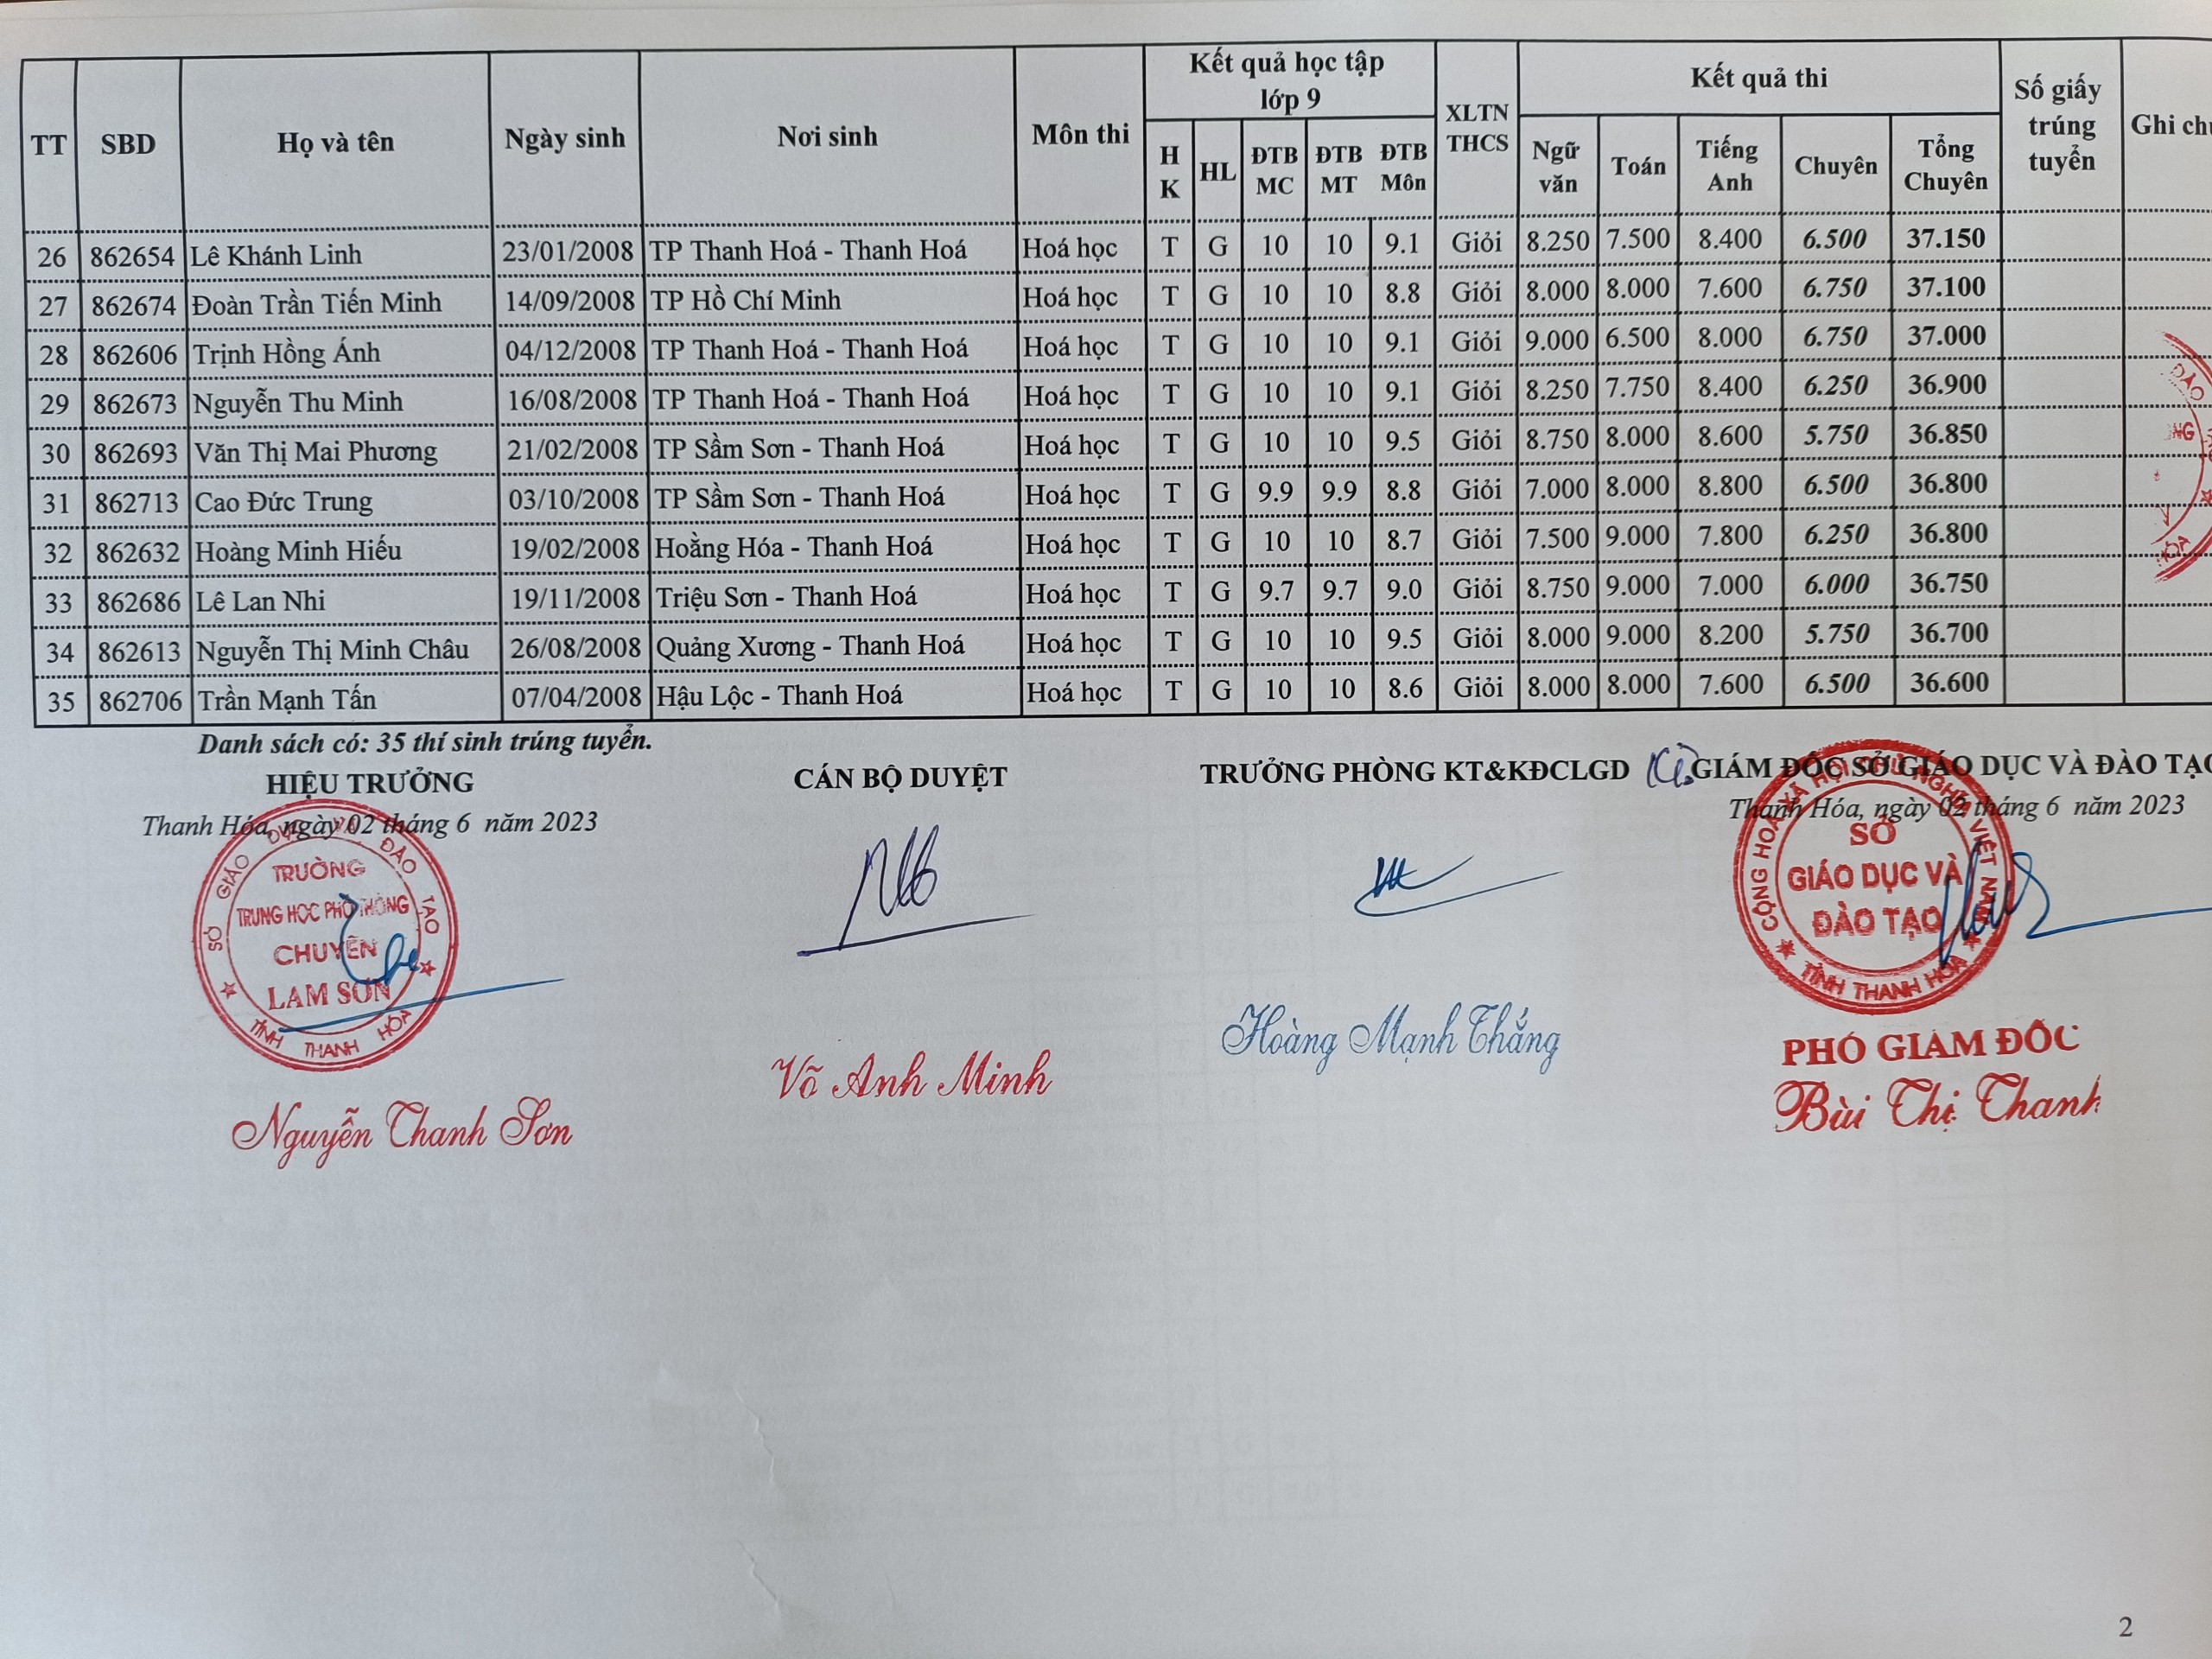 TT SBD Họ và tên Ngày sinh Nơi sinh Môn thi Kết quả học tập lớp 9 XLTN THCS Kết quả thi Số giấy trúng tuyển Ghi ch
H K HL ĐTB MC ĐTB MT ĐTB Môn Ngữ văn Toán Tiếng Anh Chuyên Tổng Chuyên
26 862654 Lê Khánh Linh 23/01/2008 TP Thanh Hoá - Thanh Hoá Hoá học T G 10 10 9.1 Giỏi 8.250 7.500 8.400 6.500 37.150
27 862674 Đoàn Trần Tiến Minh 14/09/2008 TP Hồ Chí Minh Hoá học T G 10 10 8.8 Giỏi 8.000 8.000 7.600 6.750 37.100
28 862606 Trịnh Hồng Ánh 04/12/2008 TP Thanh Hoá - Thanh Hoá Hoá học T G 10 10 9.1 Giỏi 9.000 6.500 8.000 6.750 37.000
29 862673 Nguyễn Thu Minh 16/08/2008 TP Thanh Hoá - Thanh Hoá Hoá học T G 10 10 9.1 Giỏi 8.250 7.750 8.400 6.250 36.900
30 862693 Văn Thị Mai Phương 21/02/2008 TP Sầm Sơn - Thanh Hoá Hoá học T G 10 10 9.5 Giỏi 8.750 8.000 8.600 5.750 36.850
31 862713 Cao Đức Trung 03/10/2008 TP Sầm Sơn - Thanh Hoá Hoá học T G 9.9 9.9 8.8 Giỏi 7.000 8.000 8.800 6.500 36.800
32 862632 Hoàng Minh Hiếu 19/02/2008 Hoằng Hóa - Thanh Hoá Hoá học T G 10 10 8.7 Giỏi 7.500 9.000 7.800 6.250 36.800
33 862686 Lê Lan Nhi 19/11/2008 Triệu Sơn - Thanh Hoá Hoá học T G 9.7 9.7 9.0 Giỏi 8.750 9.000 7.000 6.000 36.750
34 862613 Nguyễn Thị Minh Châu 26/08/2008 Quảng Xương - Thanh Hoá Hoá học T G 10 10 9.5 Giỏi 8.000 9.000 8.200 5.750 36.700
35 862706 Trần Mạnh Tấn 07/04/2008 Hậu Lộc - Thanh Hoá Hoá học T G 10 10 8.6 Giỏi 8.000 8.000 7.600 6.500 36.600
Danh sách có: 35 thí sinh trúng tuyển.
HIỆU TRƯỞNG CÁN BỘ DUYỆT TRƯỞNG PHÒNG KT&KĐCLGD GIÁM ĐỐC SỞ GIÁO DỤC VÀ ĐÀO TẠO
Thanh Hóa, ngày 02 tháng 6 năm 2023 Thanh Hóa, ngày 02 tháng 6 năm 2023
SỞ GIÁO DỤC VÀ ĐÀO TẠO
TRƯỜNG
TRUNG HỌC PHỔ THÔNG
CHUYÊN
LAM SƠN
TỈNH THANH HÓA
CỘNG HOÀ XÃ HỘI CHỦ NGHĨA VIỆT NAM
SỞ
GIÁO DỤC VÀ
ĐÀO TẠO
TỈNH THANH HÓA
Nguyễn Thanh Sơn
Võ Anh Minh
Hoàng Mạnh Thắng
PHÓ GIÁM ĐỐC
Bùi Thị Thanh
2